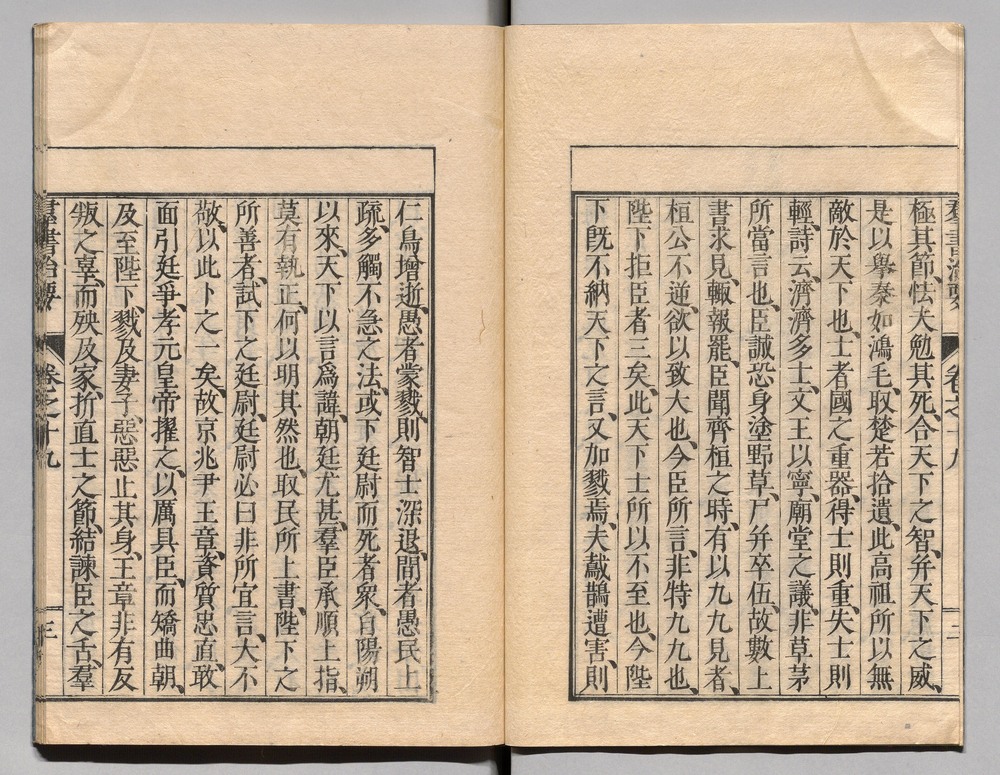 羣書治要　卷之十九　二
極其節怯夫勉其死合天下之智幷天下之威、
是以舉秦如鴻毛、取楚若拾遺、此高祖所以無
敵於天下也、士者國之重器、得士則重、失士則
輕、詩云、濟濟多士、文王以寧、廟堂之議、非草茅
所當言也、臣誠恐身塗野草、尸幷卒伍、故數上
書求見、輒報罷、臣聞齊桓之時、有以九九見者、
桓公不逆、欲以致大也、今臣所言、非特九九也、
陛下拒臣者三矣、此天下士所以不至也、今陛
下旣不納天下之言、又加戮焉、夫䳒鵲遭害、則
仁鳥增逝、愚者蒙戮、則智士深退、閒者愚民上
疏、多觸不急之法、或下廷尉而死者衆、自陽朔
以來、天下以言爲諱、朝廷尤甚、羣臣承順上指、
莫有執正、何以明其然也、取民所上書、陛下之
所善者、試下之廷尉、廷尉必曰非所宜言、大不
敬、以此卜之一矣、故京兆尹王章、資質忠直、敢
面引廷爭、孝元皇帝擢之、以厲具臣、而矯曲朝、
及至陛下、戮及妻子、惡惡止其身、王章非有反
叛之辜、而殃及家、折直士之節、結諫臣之舌、羣
羣書治要　卷之十九　三